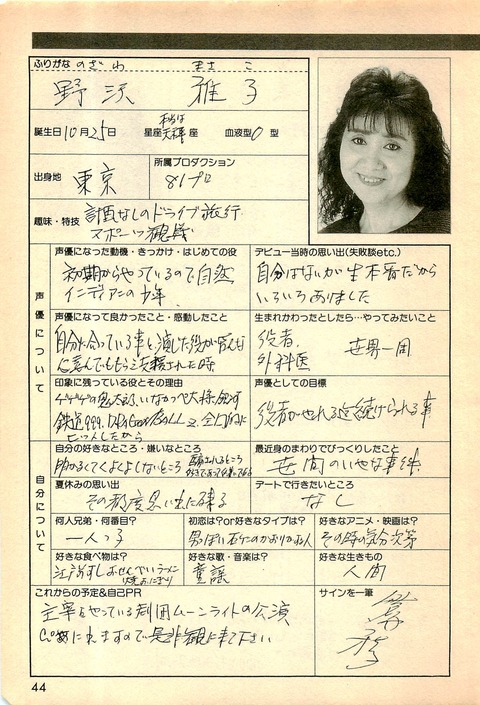 ふりがな のざわ まさこ
野沢 雅子
誕生日 10月25日 星座 本当は天秤座 血液型 O 型
出身地 東京
所属プロダクション
81プロ
趣味・特技 計画なしのドライブ旅行
スポーツ観戦
声優について
声優になった動機・きっかけ・はじめての役
初期からやっているので自然
インディアンの少年
デビュー当時の思い出(失敗談etc.)
自分はないが生本番だから
いろいろありました
声優になって良かったこと・感動したこと
自分に合っている事と演じた役が
生まれかわったとしたら…やってみたいこと
役者 世界一周
外科医
印象に残っている役とその理由
ゲゲゲの鬼太郎、いなかっぺ大将、銀河
鉄道999、DRAGON BALL Z、全国的に
ヒットしたから
声優としての目標
役者がやれる迄続けられる事
自分について
自分の好きなところ・嫌いなところ
明るくてくよくよしないところ
最近身のまわりでびっくりしたこと
世間のいやな事件
夏休みの思い出
その都度思い出に残る
デートで行きたいところ
なし
何人兄弟・何番目?
一人っ子
初恋は?or好きなタイプは?
男っぽい
好きなアニメ・映画は?
その時の気分次第
好きな食べ物は?
江戸前すし おせんべい ラーメン
焼おにぎり
好きな歌・音楽は?
童謡
好きな生きもの
人間
これからの予定&自己PR
主宰をやっている劇団ムーンライトの公演
に入れますので是非観に来て下さい
サインを一筆
44